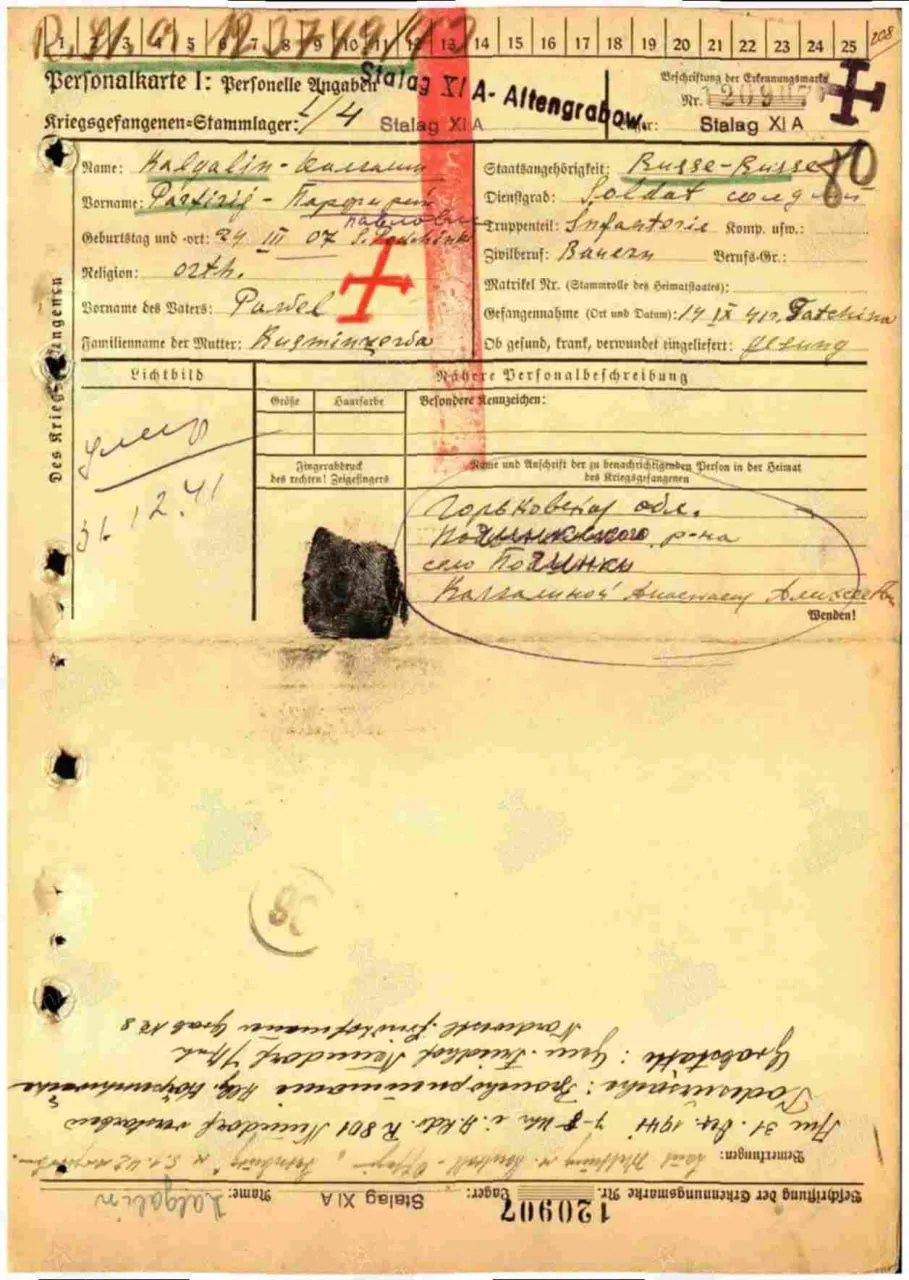 1 2 3 4 5 6 7 8 9 10 11 12 13 14 15 16 17 18 19 20 21 22 23 24 25
208
Personalkarte I: Personelle Angaben
Stalag XI A - Altengrabow.
Beschriftung der Erkennungsmarke
Nr. 120907
Kriegsgefangenen=Stammlager: I/4 Stalag XI A
Lager: Stalag XI A
80
Des Kriegsgefangenen
Name: Kalgalin - Калгалин
Vorname: Parfirij - Парфирий
Павлович
Geburtstag und -ort: 24 III 07
Religion: orth.
Vorname des Vaters: Pawel
Familienname der Mutter:
Staatsangehörigkeit: Russe - Russe
Dienstgrad: Soldat солдат
Truppenteil: Infanterie Komp. usw.:
Zivilberuf: Bauern Berufs-Gr.:
Matrikel Nr. (Stammrolle des Heimatstaates):
Gefangennahme (Ort und Datum): 14 IX 41, Gatchina
Ob gesund, krank, verwundet eingeliefert: gesund
Lichtbild
Nähere Personalbeschreibung
Größe
Haarfarbe
Besondere Kennzeichen:
умер
31.12.41
Fingerabdruck
des rechten! Zeigefingers
Name und Anschrift der zu benachrichtigenden Person in der Heimat
des Kriegsgefangenen
Горьковская обл.
Починковского р-на
село Починки
Калгалиной Анастасии Алексеев
Wenden!
Beschriftung der Erkennungsmarke Nr. 120907 Lager: Stalag XI A Name: Kalgalin
Bemerkungen:
Am 31. Dez. 1941 7-8 Uhr i. A.Kdo. R 801 Neindorf verstorben
Todesursache: Bronchopneumonie allg. Körperschwäche
Grabstätte: Gem. Friedhof Neindorf
Grab Nr 8